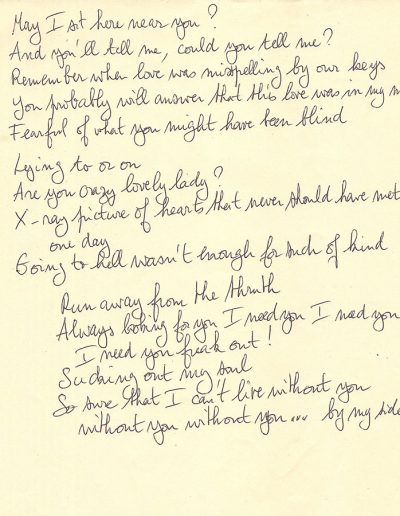 May I sit here near you?
And you'll tell me, could you tell me?
Remember when love was misspelling by our keys
You probably will answer that this love was in my m
Fearful of what you might have been blind
Lying to or on
Are you crazy lovely lady?
X-ray picture of hearts that never should have met
one day
Going to hell wasn't enough for such of kind
Run away from the thruth
Always looking for you I need you I need you
I need you freak out!
Sucking out my soul
So sure that I can't live without you
without you without you... by my side